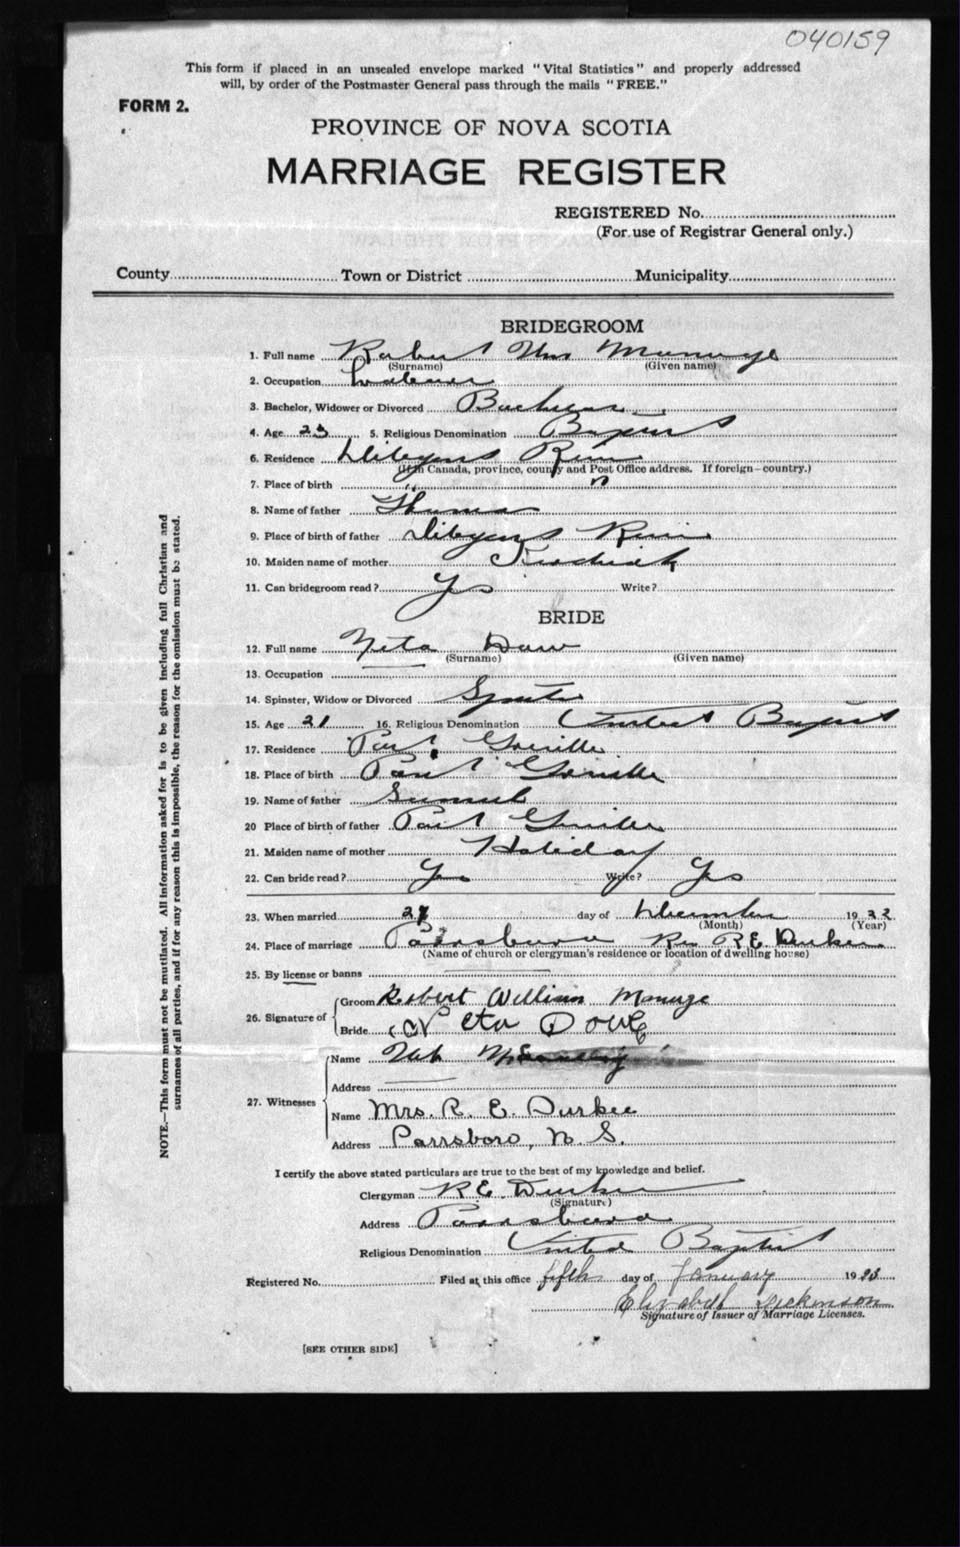 040159
This form if placed in an unsealed envelope marked "Vital Statistics" and properly addressed
will, by order of the Postmaster General pass through the mails "FREE."
FORM 2.
PROVINCE OF NOVA SCOTIA
MARRIAGE REGISTER
REGISTERED No.
(For use of Registrar General only.)
County Town or District Municipality
BRIDEGROOM
1. Full name Robert Wm
(Surname) (Given name)
2. Occupation Laborer
3. Bachelor, Widower or Divorced Bachelor
4. Age 23 5. Religious Denomination Baptist
6. Residence
(If in Canada, province, county and Post Office address. If foreign—country.)
7. Place of birth " "
8. Name of father Thomas
9. Place of birth of father
10. Maiden name of mother
11. Can bridegroom read? Yes Write?
BRIDE
12. Full name Neta
(Surname) (Given name)
13. Occupation
14. Spinster, Widow or Divorced Spinster
15. Age 21 16. Religious Denomination United Baptist
17. Residence Port Greville
18. Place of birth Port Greville
19. Name of father Samuel
20 Place of birth of father Port Greville
21. Maiden name of mother
22. Can bride read? Yes Write? Yes
23. When married day of December 1922
(Month) (Year)
24. Place of marriage Parrsboro R.E. Durkee
(Name of church or clergyman's residence or location of dwelling house)
25. By license or banns
26. Signature of Groom Robert William
Bride Neta Dowe
27. Witnesses
Name
Address
Name Mrs. R. E. Durkee
Address Parrsboro, N. S.
I certify the above stated particulars are true to the best of my knowledge and belief.
Clergyman R E Durkee
(Signature)
Address Parrsboro
Religious Denomination United Baptist
Registered No. Filed at this office fifth day of January 1923
Elizabeth Dickinson
Signature of Issuer of Marriage Licenses.
[SEE OTHER SIDE]
NOTE.—This form must not be mutilated. All information asked for is to be given including full Christian and
surnames of all parties, and if for any reason this is impossible, the reason for the omission must be stated.